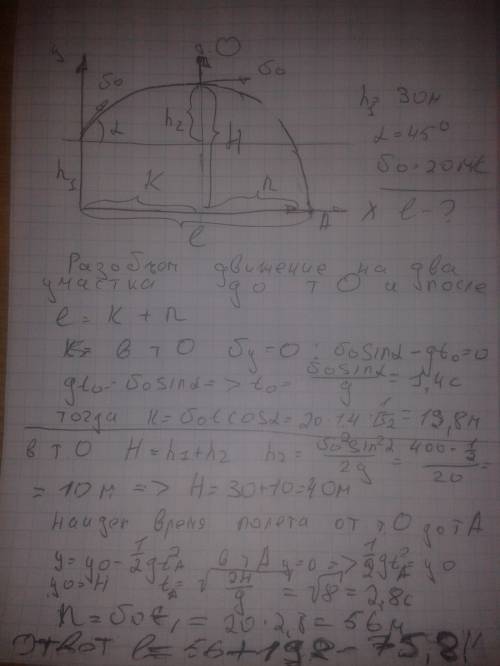 y
O
υ₀
υ₀
h₂
H
α
h₁
K
n
l
A
x
h₁ 30м
α = 45°
υ₀ = 20 м/с
l - ?
Разобьем движение на два
участка до т О и после
l = K + n
K= в т О υy = 0 : υ₀sinα - gt₀ = 0
gt₀ = υ₀sinα => t₀ = υ₀sinα/g = 1,4с
тогда K = υ₀tcosα = 20·1,4·1/√2 = 19,8м
в т О H = h₁ + h₂ h₂ = υ₀²sin²α/2g = 400·1/2/20 =
= 10м => H = 30+10 = 40м
найдем время полета от т. О до т А
y = y₀ - 1/2 gt²A в т А y = 0 => 1/2 gt²A = y₀
y₀ = H tA = √2H/g = √8 = 2,8с
n = υ₀t₁ = 20·2,8 = 56м
Ответ l = 56 + 19,8 = 75,8м